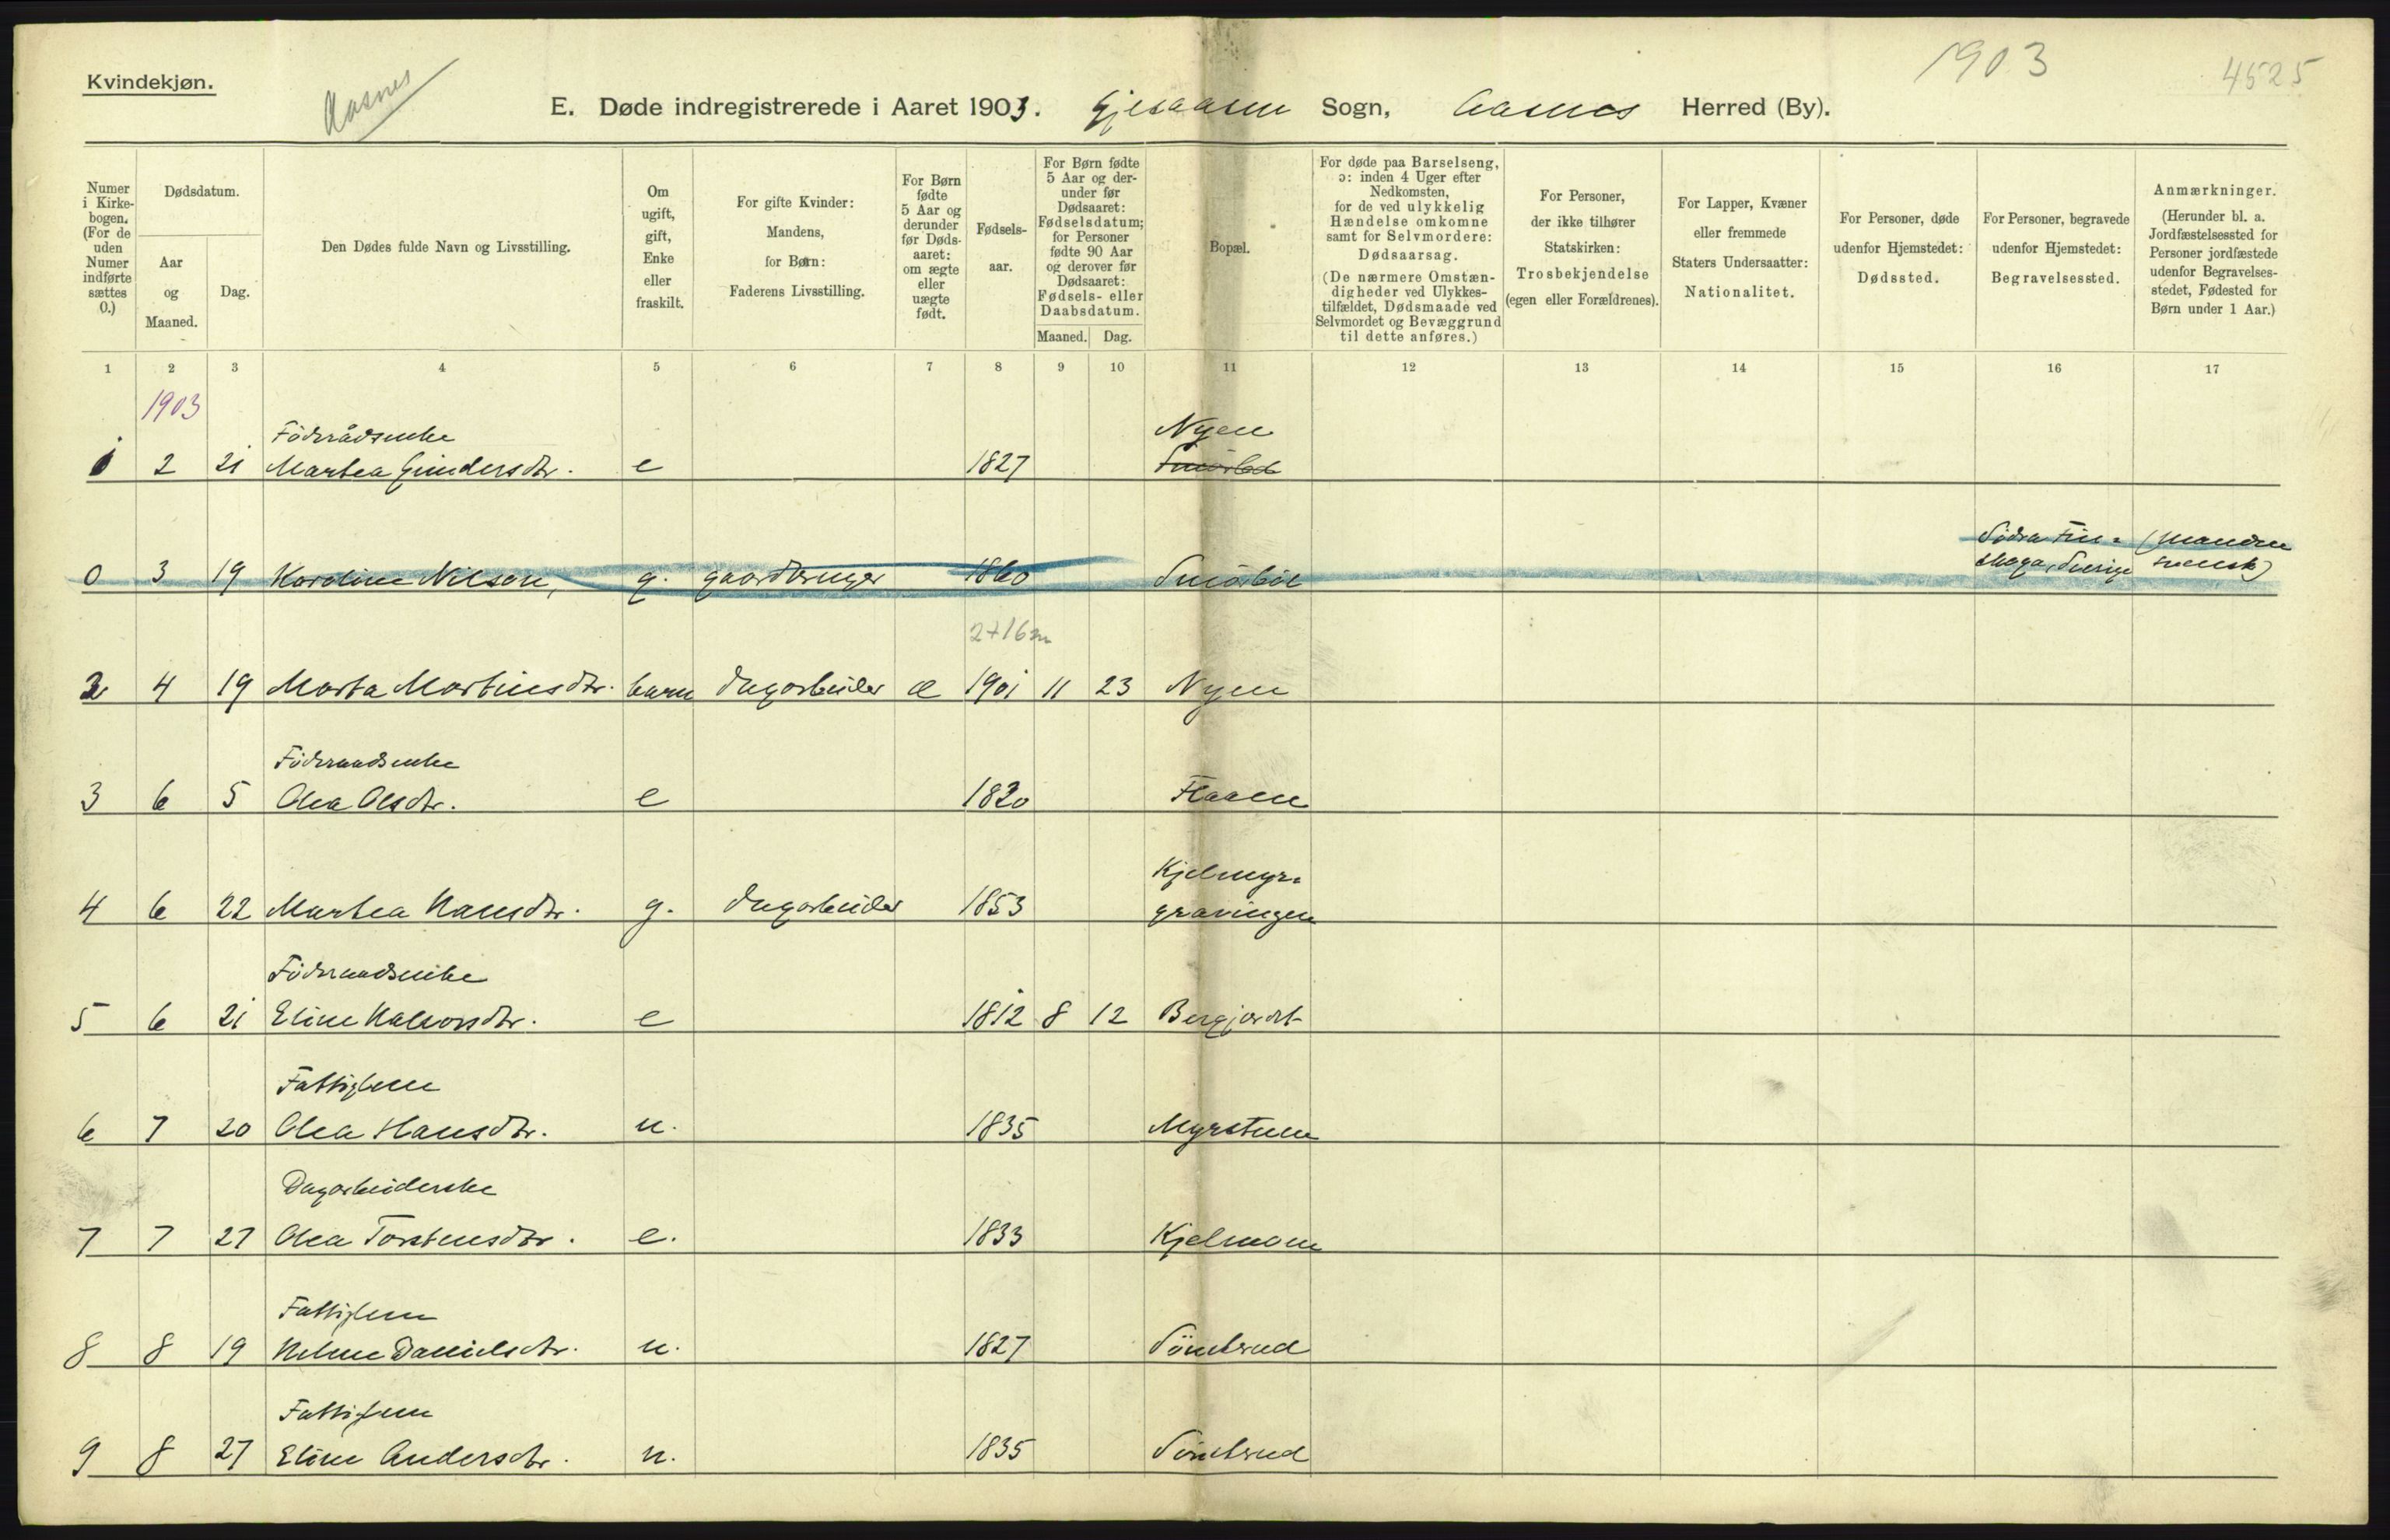 Kvindekjøn.
Aasnes
1903
4525
E. Døde indregistrerede i Aaret 1903. Gjesaasen Sogn, Aasnes Herred (By).
Numer i Kirkebogen. (For de uden Numer indførte sættes 0.)
Dødsdatum.
Aar og Maaned.
Dag.
Den Dødes fulde Navn og Livsstilling.
Om ugift, gift, Enke eller fraskilt.
For gifte Kvinder: Mandens, for Børn: Faderens Livsstilling.
For Børn fødte 5 Aar og derunder før Dødsaaret: om ægte eller uægte født.
Fødselsaar.
For Børn fødte 5 Aar og derunder før Dødsaaret: Fødselsdatum; for Personer fødte 90 Aar og derover før Dødsaaret: Fødsels- eller Daabsdatum.
Maaned. Dag.
Bopæl.
For døde paa Barselseng, ɔ: inden 4 Uger efter Nedkomsten, for de ved ulykkelig Hændelse omkomne samt for Selvmordere: Dødsaarsag.
(De nærmere Omstændigheder ved Ulykkestilfældet, Dødsmaade ved Selvmordet og Bevæggrund til dette anføres.)
For Personer, der ikke tilhører Statskirken: Trosbekjendelse (egen eller Forældrenes).
For Lapper, Kvæner eller fremmede Staters Undersaatter: Nationalitet.
For Personer, døde udenfor Hjemstedet: Dødssted.
For Personer, begravede udenfor Hjemstedet: Begravelsessted.
Anmærkninger.
(Herunder bl. a. Jordfæstelsessted for Personer jordfæstede udenfor Begravelsesstedet, Fødested for Børn under 1 Aar.)
1 2 3 4 5 6 7 8 9 10 11 12 13 14 15 16 17
1903
Föderådsenke Nyen
1 2 21 Martea Gundersdtr. e 1827 Smörböl
Södra Fin- (Manden
0 3 19 Karoline Nilsson, g. gaardbruger 1860 Smörböl skoga, Sverige svensk)
2+16m
2 4 19 Marta Martinsdtr. barn dagarbeider æ 1901 11 23 Nyen
Föderaadsenke
3 6 5 Olea Olsdtr. e 1820 Flaaen
Kjelmyr-
4 6 22 Martea Hansdtr. g. dagarbeider 1853 gravingen
Föderaadsenke
5 6 21 Eline Halvorsdtr. e 1812 8 12 Bergjordet
Fattiglem
6 7 20 Olea Hansdtr. u. 1835 Myrstuen
Dagarbeiderske
7 7 27 Olea Torstensdtr. e. 1833 Kjelmoen
Fattiglem
8 8 19 Helene Danielsdtr. u. 1827 Sönsterud
Fattiglem
9 8 27 Eline Andersdtr. u. 1835 Sönsterud